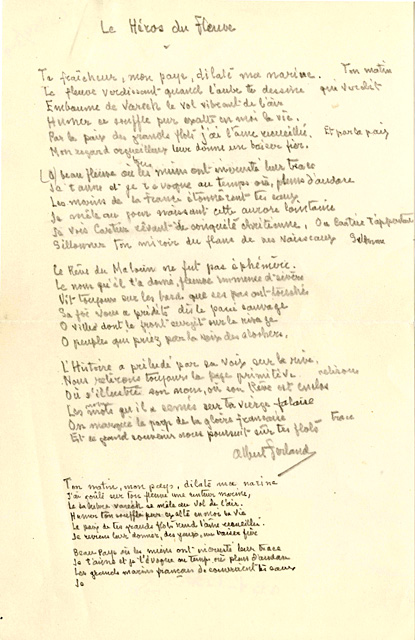 Le Héros du Fleuve
Ta fraîcheur, mon pays, dilate ma narine. Ton matin
Le fleuve verdissant quand l'aube te dessine qui verdit
Embaume de varech le vol vibrant de l'air
Humer ce souffle pur exalte en moi la vie.
Par la paix des grands flots j'ai l'âme recueillie. Et par la paix
Mon regard orgueilleux leur donne un baiser fier.
O beau fleuve où les miens ont incrusté leur trace
Je t'aime et je t'évoque au temps où, pleins d'audace
Les marins de la France étonnèrent tes eaux
Je mêle au jour naissant cette aurore lointaine
Je vois Cartier rêvant de conquête chrétienne,
Sillonner ton miroir du flanc de ses vaisseaux Sillonne
Le Rêve du Malouin ne fut pas éphémère.
Le nom qu'il t'a donné, fleuve immense et sévère
Vit toujours sur les bords que ses pas ont touchés
Sa foi nous a prédit dès le pays sauvage
O villes dont le front surgit sur le rivage
O peuples qui priez par la voix des clochers.
L'Histoire a préludé par sa voix sur la rive.
Nous relirons toujours la page primitive relisons
Où s'illustre son nom, où son Rêve est enclos
Les mots qu'il a semés sur ta vierge falaise
Ont marqué le pays de la gloire française
Et ce grand souvenir nous poursuit sur tes flots trace
Albert Ferland
Ton matin, mon pays, dilate ma narine
J'ai goûté sur ton fleuve une senteur marine,
Le varech se mêle au vol de l'air.
Humer ton souffle pur exalte en moi la vie
La paix de tes grands flots rend l'âme recueillie.
Je reviens leur donner, des yeux, un baiser fier
Beau Pays où les miens ont incrusté leur trace
Je t'aime et je t'évoque au temps où plein d'audace
Les grands marins français découvraient tes eaux
Je